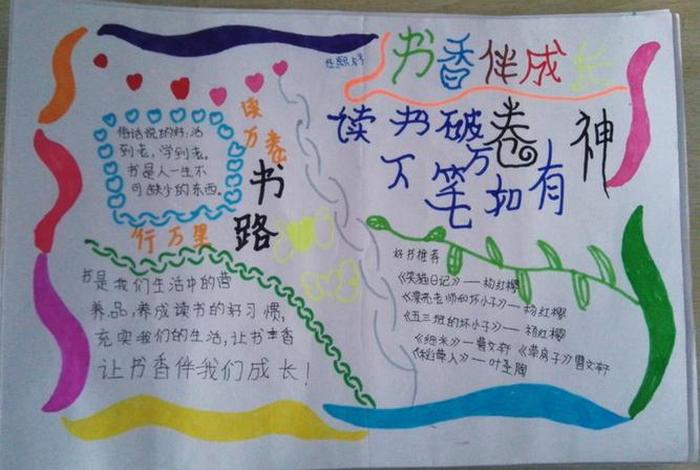 书香伴成长
读书破万卷
下笔如有神
读万卷书
行万里路
俗话说的好:活
到老,学到老。
书是人一生不
可缺少的东西。
书是我们生活中的营
养品,养成读书的好习惯,
充实我们的生活,让书香
让书香伴我们成长!
好书推荐
《笑猫日记》——杨红樱
《漂亮老师和坏小子》——杨红樱
《五三班的坏小子》——杨红樱
《细米》——曹文轩《草房子》曹文轩
《稻草人》——叶圣陶